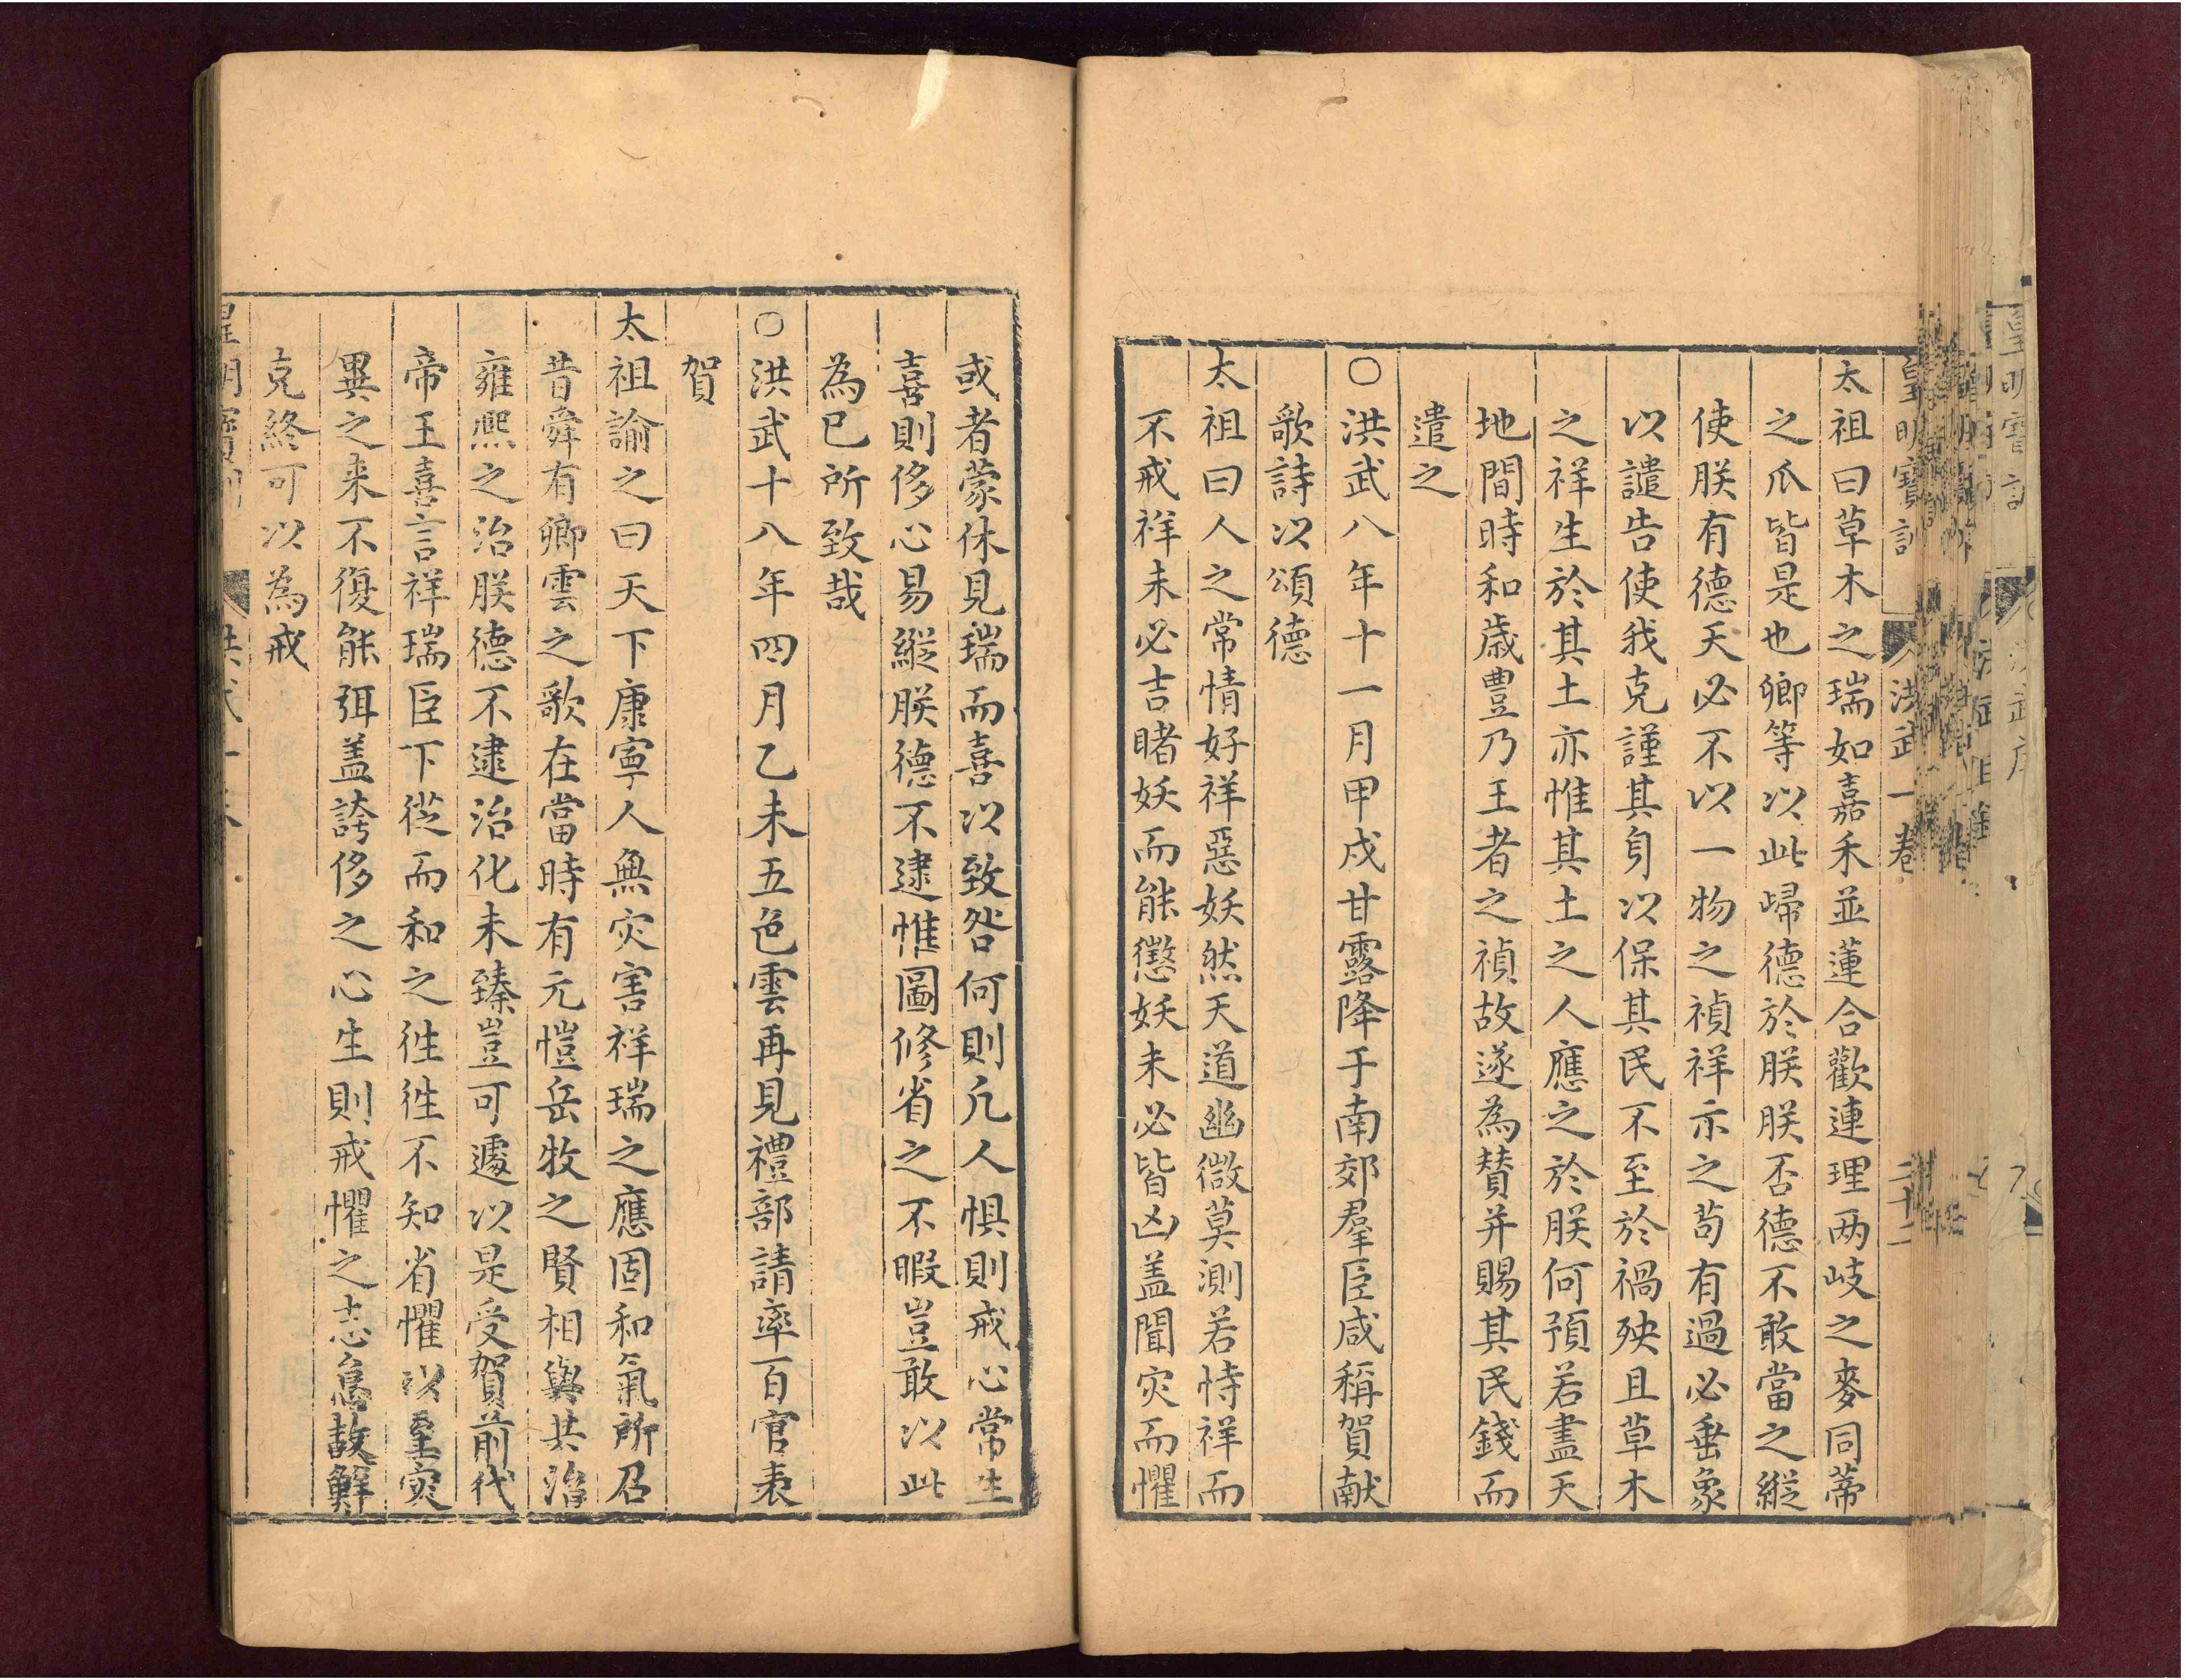 皇明寶訓 洪武一卷 二十二
太祖曰草木之瑞如嘉禾並蓮合歡連理两岐之麥同蒂
之爪皆是也卿等以此歸德於朕朕否德不敢當之縱
使朕有德天必不以一物之禎祥示之茍有過必垂象
以譴告使我克謹其身以保其民不至於禍殃且草木
之祥生於其土亦惟其土之人應之於朕何預若盡天
地間時和歲豊乃王者之禎故遂為賛并賜其民錢而
遣之
○洪武八年十一月甲戍甘露降于南郊羣臣咸稱賀献
歌詩以頌德
太祖曰人之常情好祥惡妖然天道幽微莫測若恃祥而
不戒祥未必吉睹妖而能懲妖未必皆凶盖聞灾而懼
或者蒙休見瑞而喜以致咎何則凢人惧則戒心常生
喜則侈心易縱朕德不逮惟圖修省之不暇豈敢以此
為已所致哉
○洪武十八年四月乙未五色雲再見禮部請率百官表
賀
太祖諭之曰天下康寧人無灾害祥瑞之應固和氣所召
昔舜有卿雲之歌在當時有元愷岳牧之賢相與共治
雍熙之治朕德不逮治化未臻豈可遽以是受賀前代
帝王喜言祥瑞臣下從而和之徃徃不知省懼以至灾
異之来不復能弭盖誇侈之心生則戒懼之志怠故鮮
克終可以為戒